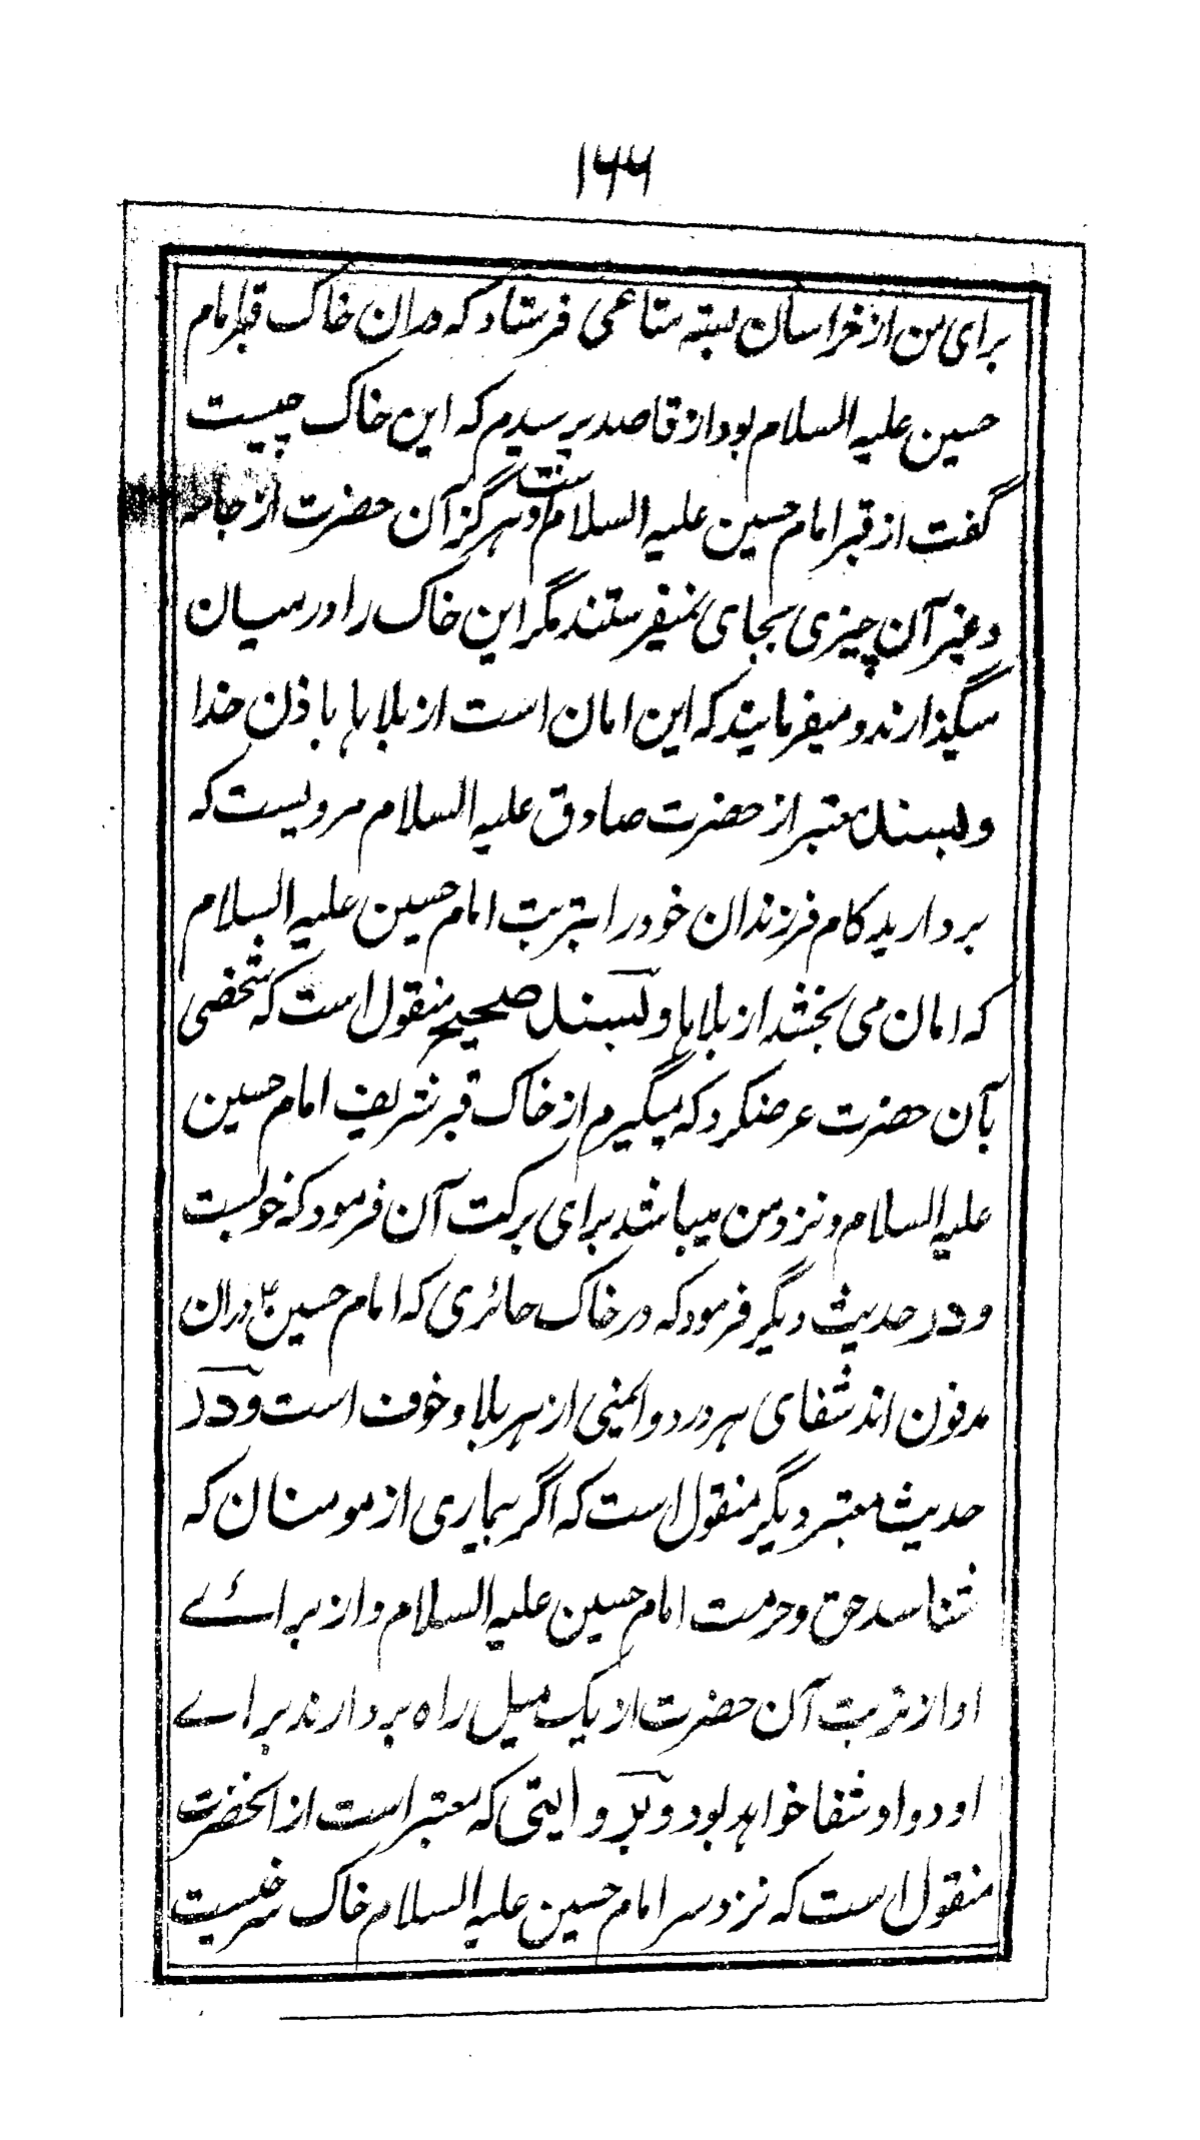 ۱۶۶
برای من از خراسان بسته متاعی فرستاد که دران خاک قبر امام
حسین علیه السلام بود از قاصد پرسیدم که این خاک چیست
گفت از قبر امام حسین علیه السلام است و هرگز آن حضرت از جامه
و غیر آن چیزی بجای نمیفرستند مگر این خاک را در میان
میگذارند و میفرمایند که این امان است از بلاها باذن خدا
و بسند معتبر از حضرت صادق علیه السلام مرویست که
بردارید کام فرزندان خود را بتربت امام حسین علیه السلام
که امان می بخشد از بلاها و بسند صحیح منقول است که شخصی
بآن حضرت عرضکرد که میگیرم از خاک قبر شریف امام حسین
علیه السلام و نزد من میباشد برای برکت آن فرمود که خوبست
و در حدیث دیگر فرمود که در خاک حائری که امام حسین ؑ دران
مدفون اند شفای هر درد و ایمنی از هر بلا و خوف است و در
حدیث معتبر دیگر منقول است که اگر بیماری از مومنان که
شناسد حق و حرمت امام حسین علیه السلام و از برائے
او از تربت آن حضرت از یک میل راه بردارند براے
او دوا و شفا خواهد بود و بروایتی که معتبر است از انحضرت
منقول است که نزد سر امام حسین علیه السلام خاک سرخیست